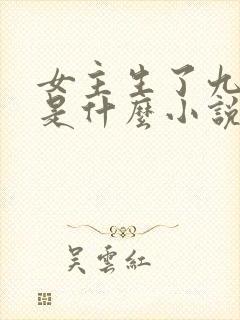 女主生了九
是什麼小說
吳雲紅